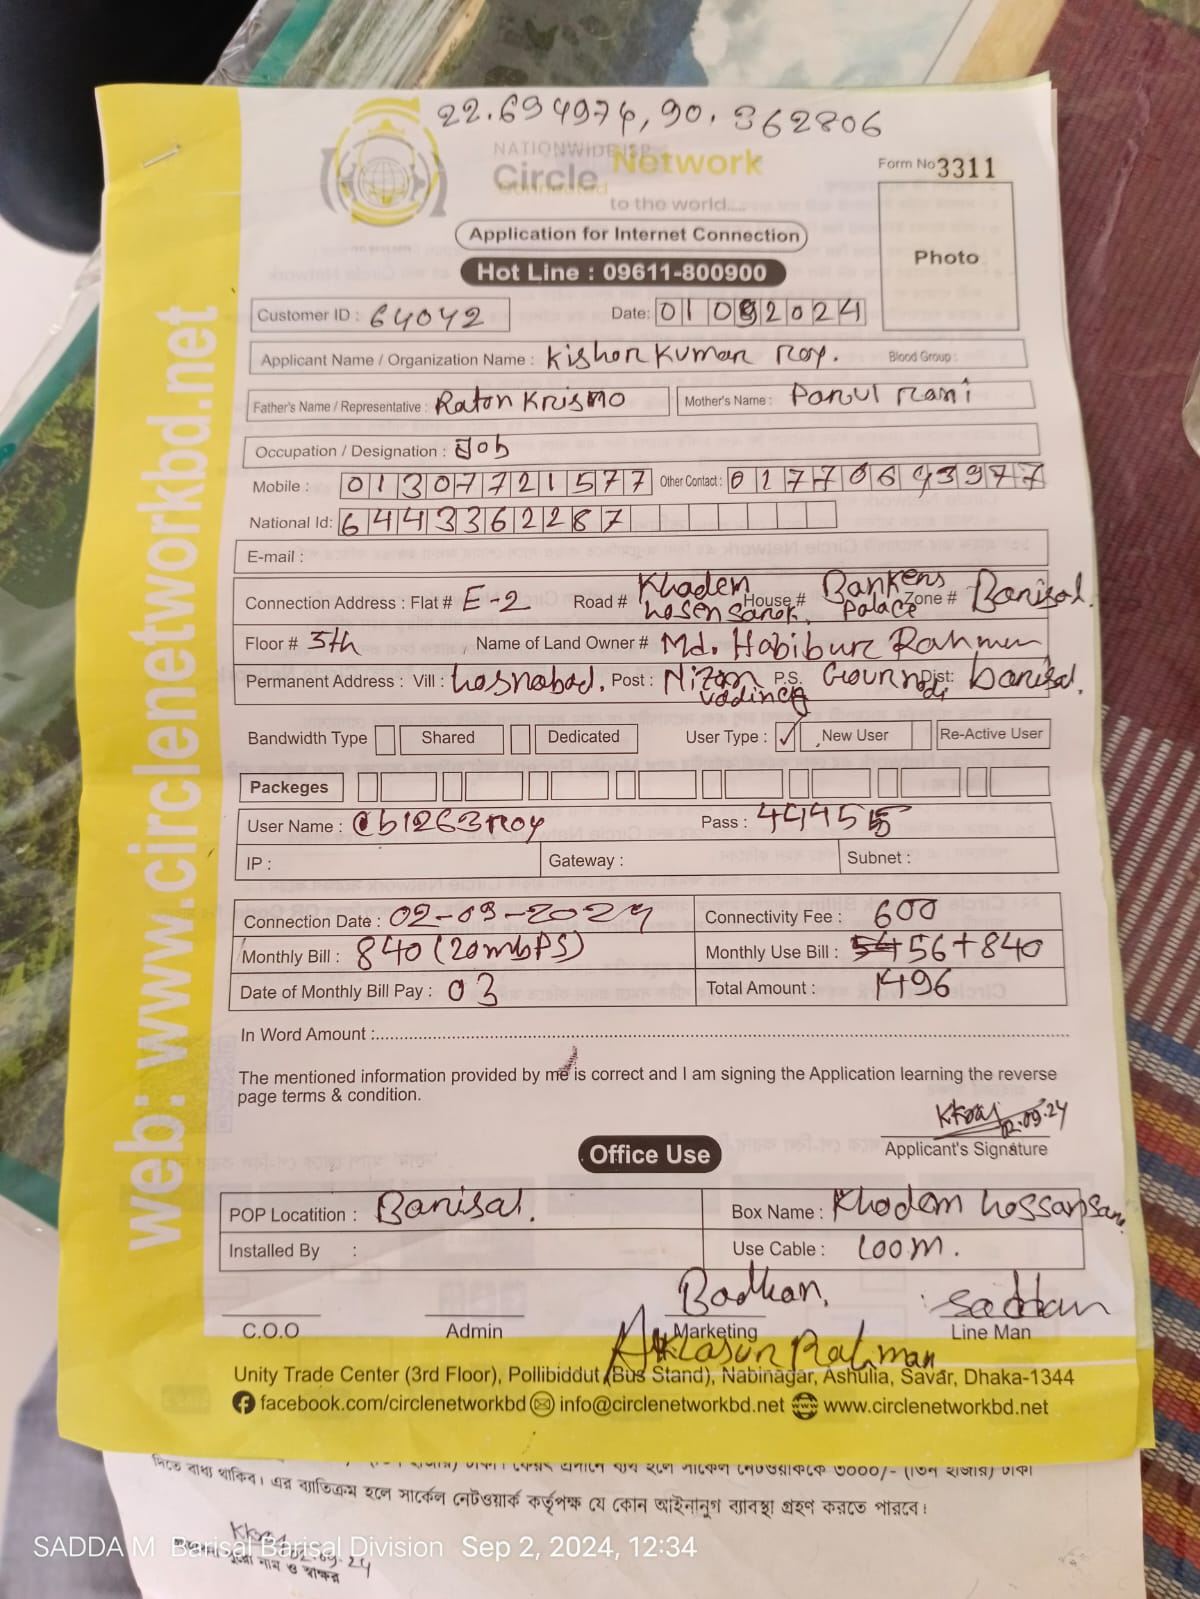 22.694974, 90.362806
NATIONWIDE ISP
Circle Network
Connected
to the world....
Form No 3311
Photo
Application for Internet Connection
Hot Line : 09611-800900
Customer ID : 64042 Date: 01092024
Applicant Name / Organization Name : Kishor Kumar Roy. Blood Group :
Father's Name / Representative : Raton Krisno Mother's Name : Parul rani
Occupation / Designation : Job
Mobile : 01307721577 Other Contact : 01770693977
National Id: 6443362287
E-mail :
Connection Address : Flat # E-2 Road # Khadem hosen sarok, House # Bankers Palace Zone # Barisal.
Floor # 5th , Name of Land Owner # Md. Habibur Rahman
Permanent Address : Vill : hosnabad. Post : Nizam uddin P.S. Gournadi Dist: barisal.
Bandwidth Type Shared Dedicated User Type : ✓ New User Re-Active User
Packeges
User Name : cb1263roy Pass : 44455
IP : Gateway : Subnet :
Connection Date : 02-09-2024 Connectivity Fee : 600
Monthly Bill : 840 (20mbPS) Monthly Use Bill : 56+840
Date of Monthly Bill Pay : 03 Total Amount : 1496
In Word Amount :
The mentioned information provided by me is correct and I am signing the Application learning the reverse
page terms & condition.
KRoy 02.09.24
Applicant's Signature
Office Use
POP Locatition : Barisal. Box Name : Khadem hossan San
Installed By : Use Cable : 100m.
Saddam
C.O.O Admin Marketing Line Man
Rahman
Unity Trade Center (3rd Floor), Pollibiddut (Bus Stand), Nabinagar, Ashulia, Savar, Dhaka-1344
facebook.com/circlenetworkbd info@circlenetworkbd.net www.circlenetworkbd.net
web: www.circlenetworkbd.net
দিতে বাধ্য থাকিব। এর ব্যতিক্রম হলে সার্কেল নেটওয়ার্ক কর্তৃপক্ষ যে কোন আইনানুগ ব্যাবস্থা গ্রহণ করতে পারবে।
02.09.24
নাম ও স্বাক্ষর
SADDA M Barisal Barisal Division Sep 2, 2024, 12:34